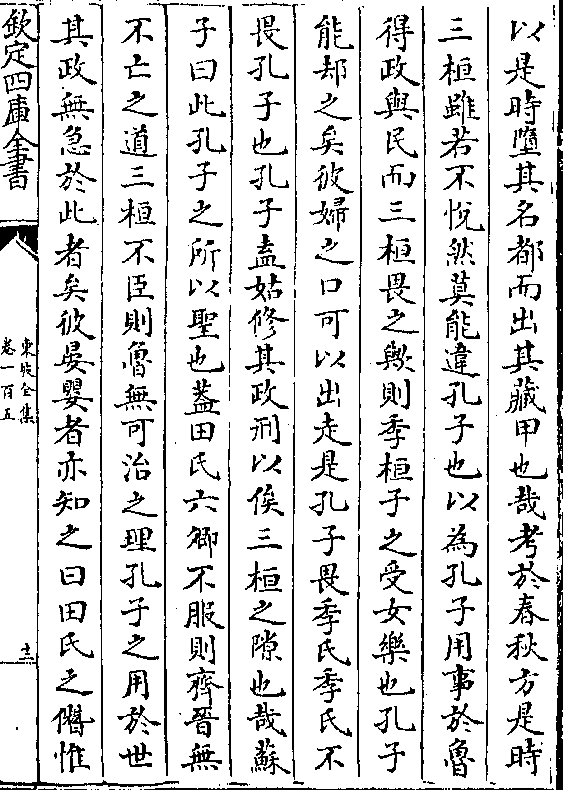 以是時墮其名都而出其藏甲也哉考於春秋方是時
三桓雖若不悅然莫能違孔子也以為孔子用事於魯
得政與民而三桓畏之歟則季桓子之受女樂也孔子
能却之矣彼婦之口可以出走是孔子畏季氏季氏不
畏孔子也孔子盍姑修其政刑以俟三桓之隙也哉蘇
子曰此孔子之所以聖也葢田氏六卿不服則齊晉無
不亡之道三桓不臣則魯無可治之理孔子之用於世
其政無急於此者矣彼晏嬰者亦知之曰田氏之僭惟
欽定四庫全書
東坡全集
卷一百五
十二